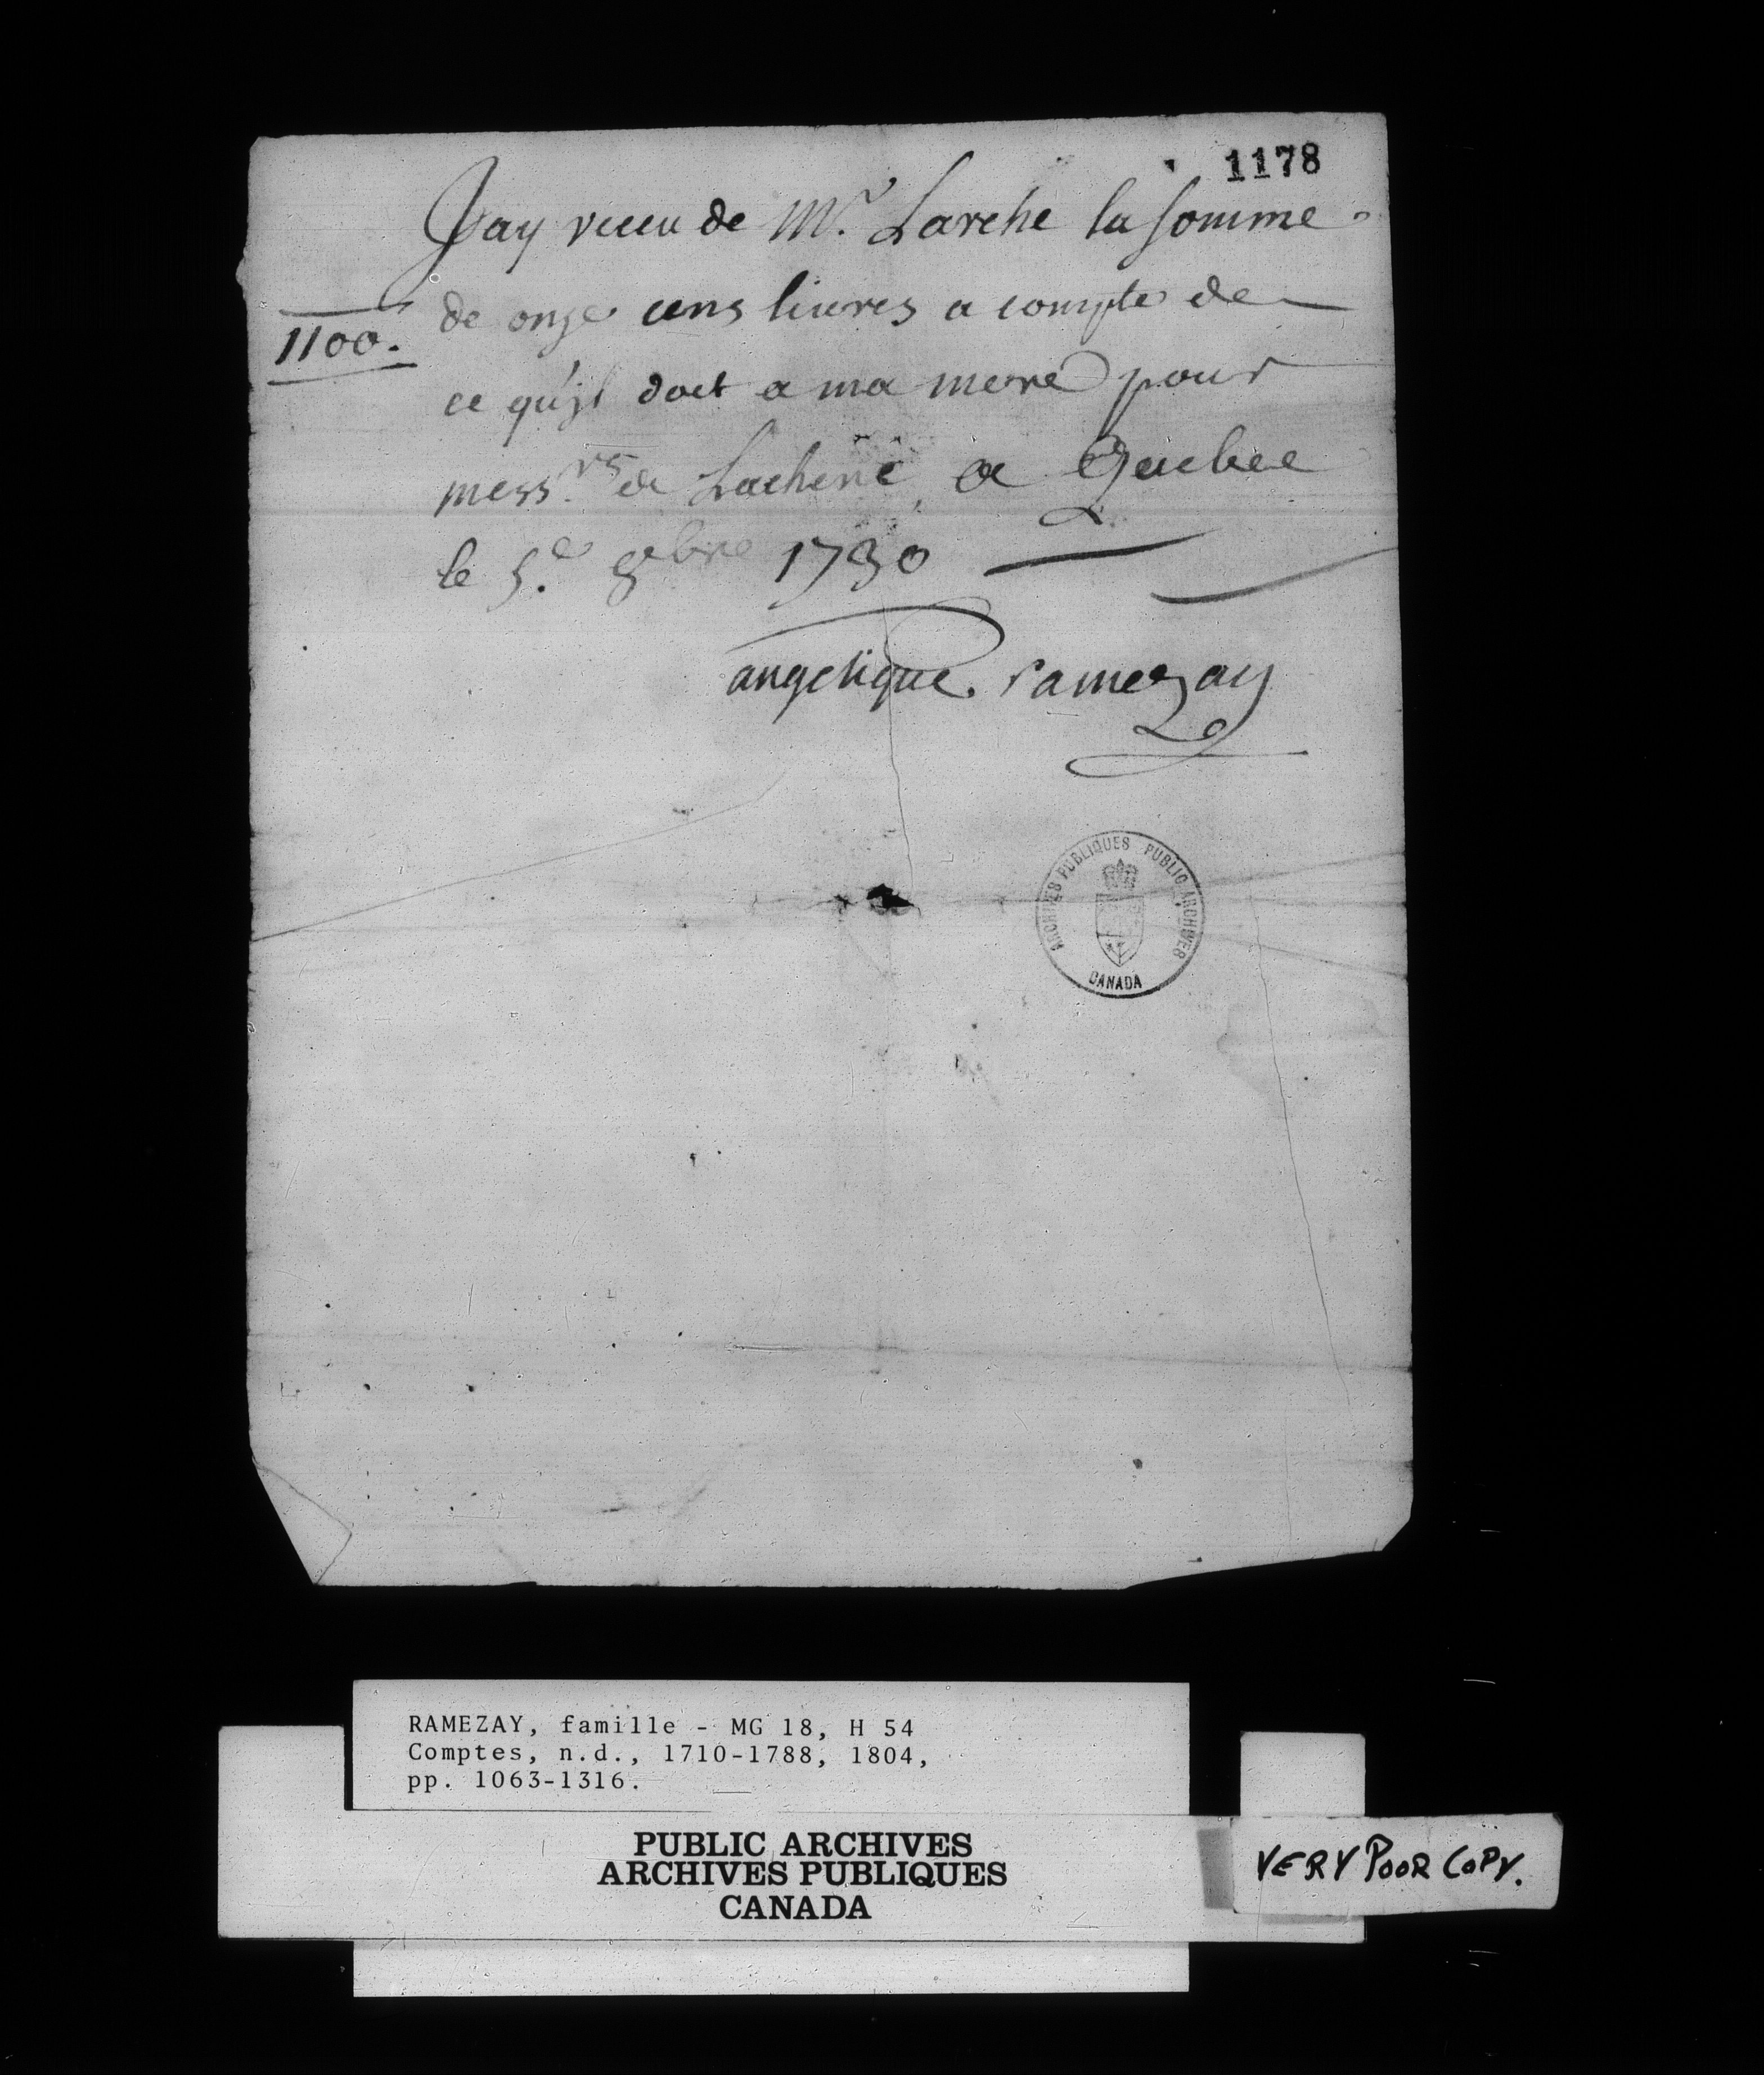 1178
Jay receu de Mr. Larche la somme
1100. de onze cens livres a compte de
ce qu'jl doit a ma mere pour
messrs. de Lachene, a Quebec
le 5.e 8bre 1730
angelique ramezay
ARCHIVES PUBLIQUES PUBLIC ARCHIVES
CANADA
RAMEZAY, famille - MG 18, H 54
Comptes, n.d., 1710-1788, 1804,
pp. 1063-1316.
PUBLIC ARCHIVES
ARCHIVES PUBLIQUES
CANADA
VERY POOR COPY.